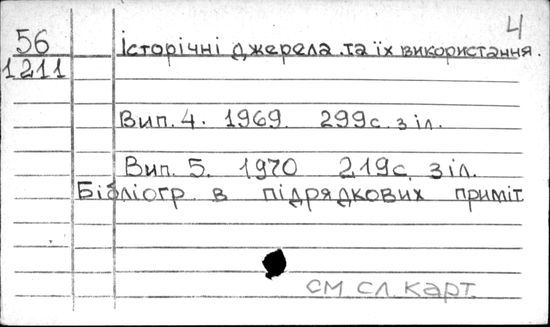 4
56
1211
Історічні джерела та їх використання.
Вип. 4. 1969. 299с. з іл.
Вип. 5. 1970 219с. з іл.
Бібліогр в підрядкових приміт
см сл. карт.